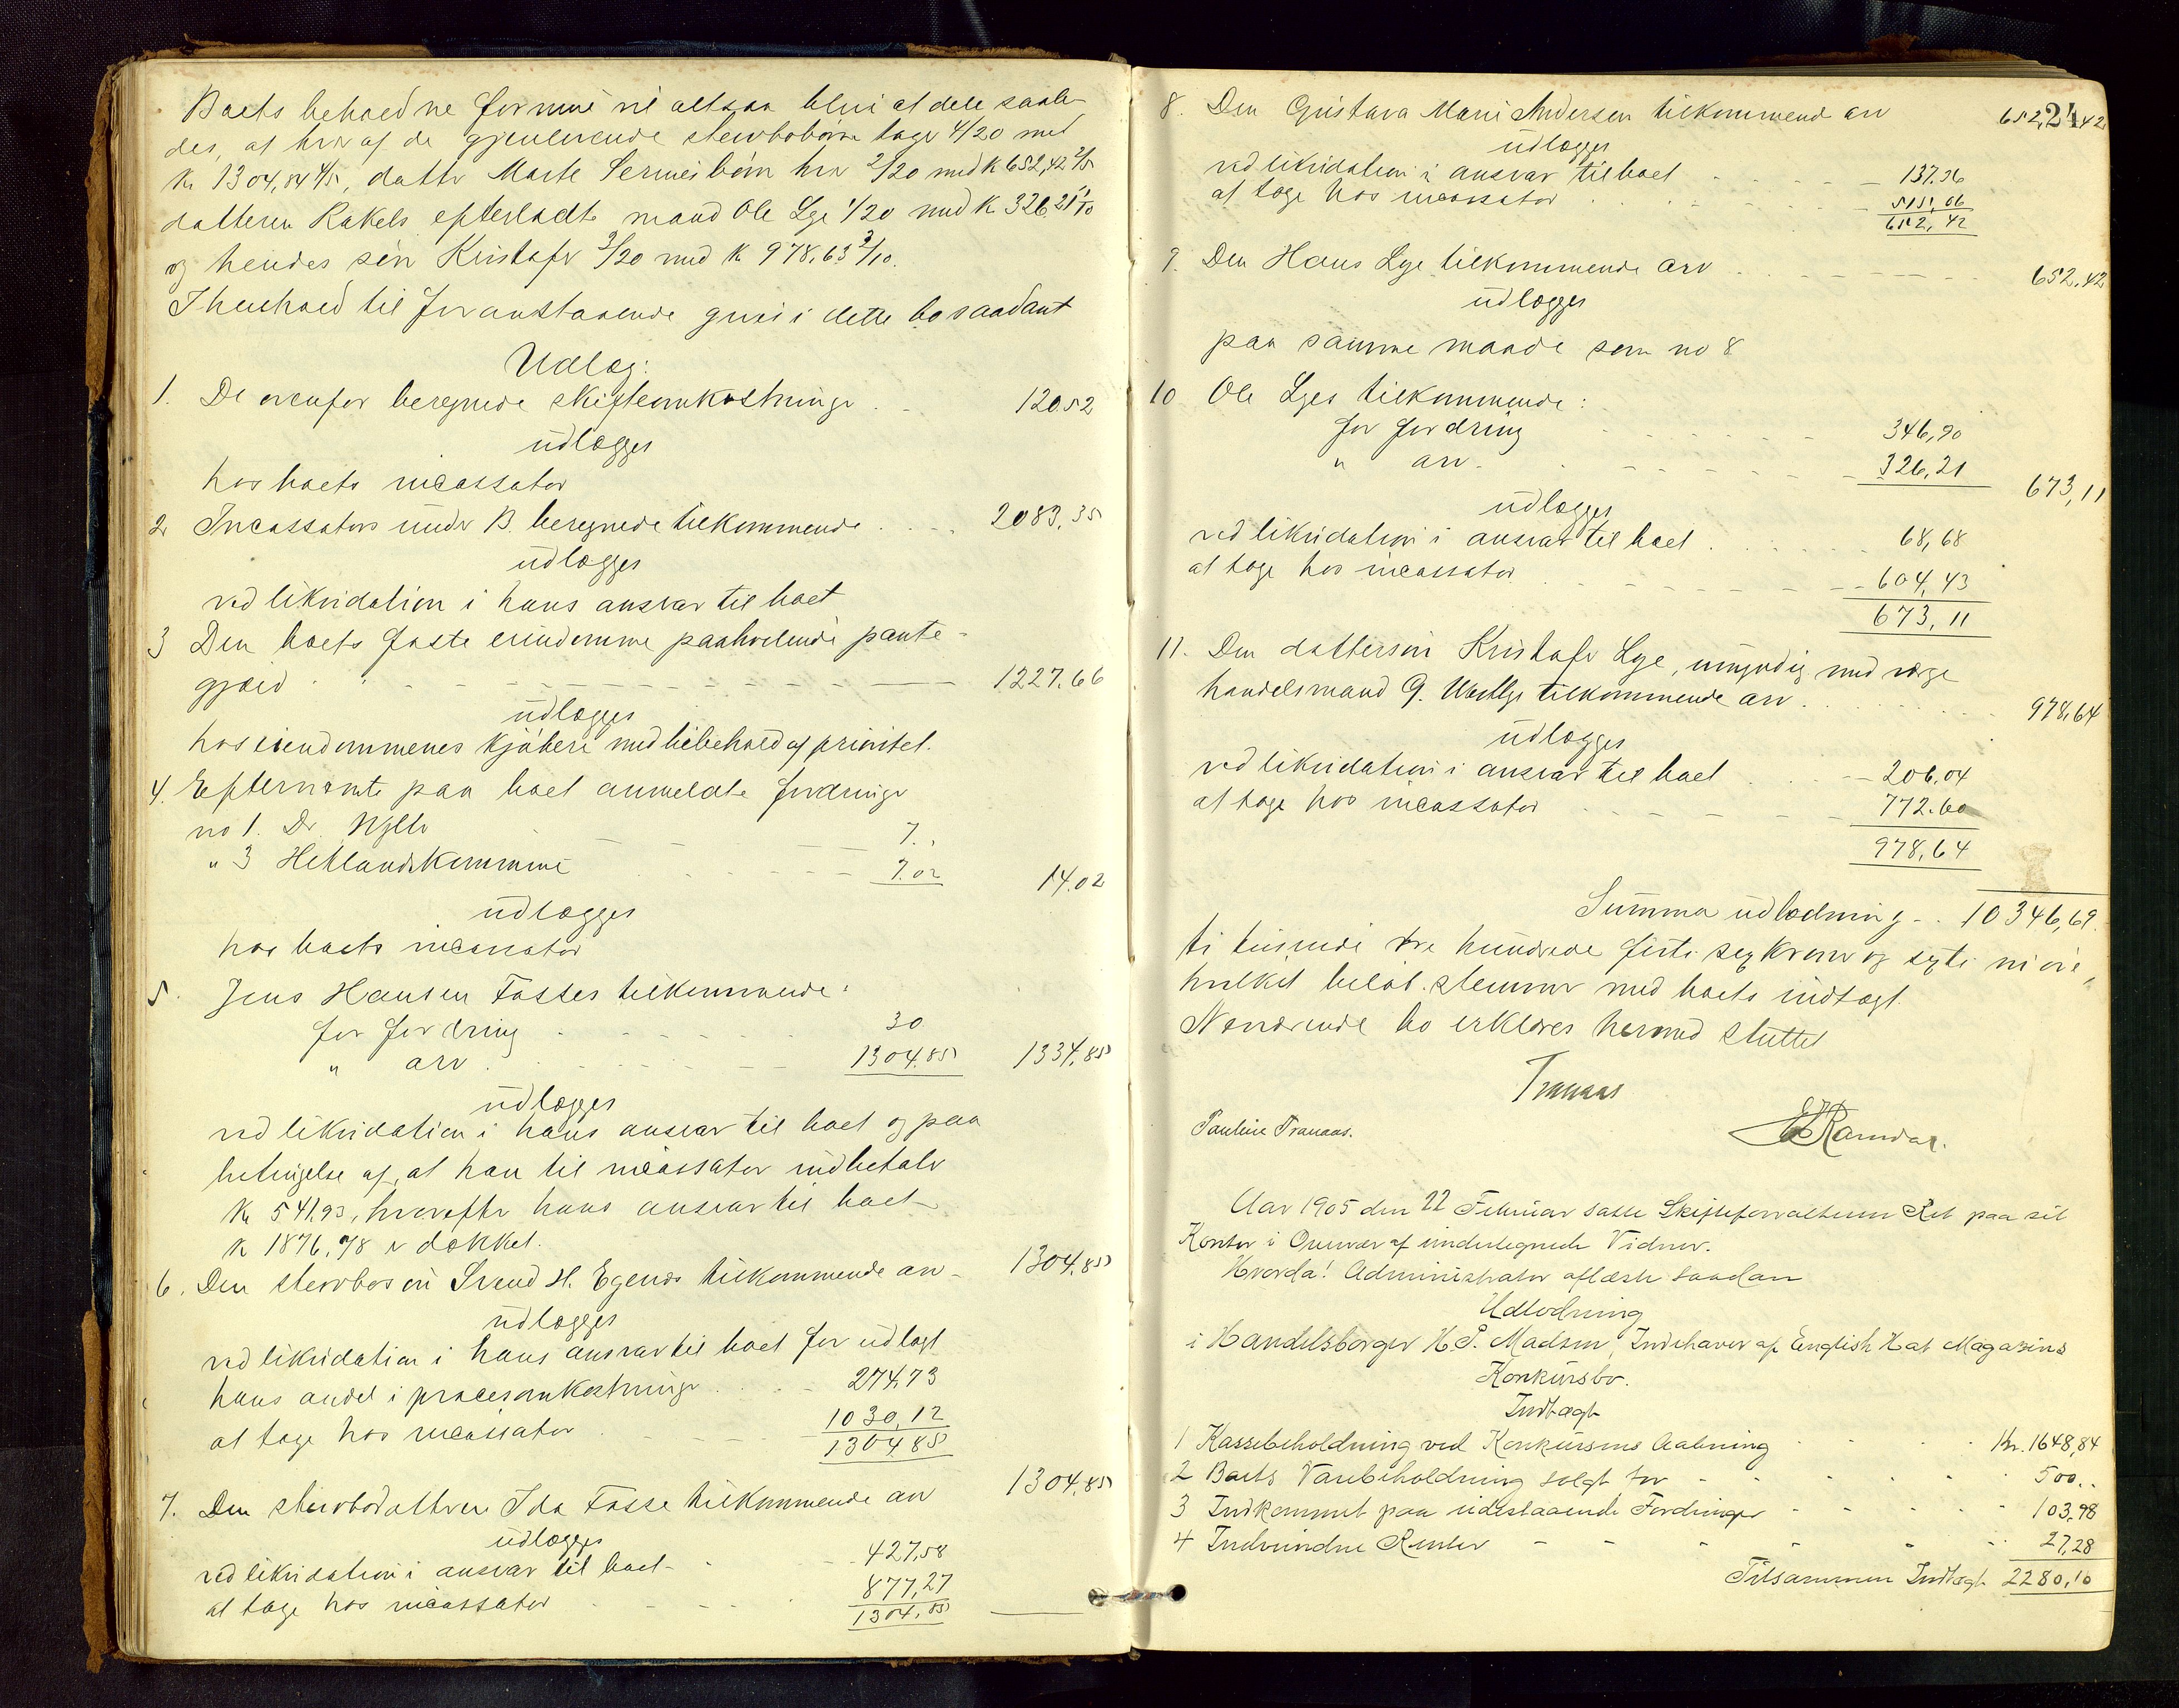 Boets beholdne formue vil altsaa blive at dele saale-
des, at hver af de gjenlevende stervbobørn tager 4/20 med
Kr 1304,84 4/5, datter Marte Serines børn hver 2/20 med K 652,42 2/5
datteren Rakels efterladte mand Ole Lye 1/20 med K 326,21 1/10
og hendes søn Kristofer 3/20 med K 978,63 3/10.
I henhold til foranstaaende gives i dette bo saadant
Udlæg:
1. De ovenfor beregnede skifteomkostninger 120.52
udlægges
hos boets incassator
2. Incassators under B. beregnede tilkommende 2083,35
udlægges
ved likvidation i hans ansvar til boet
3 Den boets faste eiendomme paahvilende pante-
gjæld 1227.66
udlægges
hos eiendommenes kjøbere med bibehold af prioritet.
4. Efternævnte paa boet anmeldte fordringer
no 1. Dr. 7.
" 3 Hetlands kommune 7.02 14.02
udlægges
hos boets incassator
5. Jens Hansen Fosses tilkommende:
for fordring 30
" arv 1304.85 1334,85
udlægges
ved likvidation i hans ansvar til boet og paa
betingelse af, at han til incassator indbetaler
Kr 541,93, hvorefter hans ansvar til boet
K 1876,78 er dækket.
6. Den stervbosøn Svend H. Egenes tilkommende arv 1304,85
udlægges
ved likvidation i hans ansvar til boet for udlagt
hans andel i procesomkostninger 274,73
at tage hos incassator 1030,12
1304,85
7. Den stervbodatteren Ida Fosse tilkommende arv 1304,85
udlægges
ved likvidation i ansvar til boet 427,58
at tage hos incassator 877,27
1304,85
24
8. Den Gustava Marie Andersen tilkommende arv 652,42
udlægges
ved likvidation i ansvar til boet 137.36
at tage hos incassator 515,06
652,42
9. Den Hans Lye tilkommende arv 652,42
udlægges
paa samme maade som no 8
10 Ole Lyes tilkommende:
for fordring 346,90
" arv 326,21
673,11
udlægges
ved likvidation i ansvar til boet 68,68
at tage hos incassator 604,43
673,11
11. Den dattersøn Kristofer Lye, umyndig med værge
handelsmand G. tilkommende arv 978,64
udlægges
ved likvidation i ansvar til boet 206,04
at tage hos incassator 772.60
978,64
Summa udlodning 10346,69.
ti tusinde tre hundrede firti sex kroner og sexti ni øre,
hvilket beløb stemmer med boets indtægt.
Nærværende bo erklæres hermed sluttet
Tranaas
Pauline Tranaas. Ramdal.
Aar 1905 den 22 Februar satte Skifteforvalteren Ret paa sit
Kontor i Overvær af undertegnede Vidner.
Hvorda! Administrator aflæste saadan
Udlodning
i Handelsborger H. P. Madsen, Indehaver af English Hat Magazins
Konkursbo.
Indtægt
1 Kassebeholdning ved Konkursens Aabning Kr. 1648,84
2 Boets Varebeholdning solgt for 500..
3 Indkommet paa udestaaende Fordringer 103,98
4 Indvundne Renter 27,28
Tilsammen Indtægt 2280,10